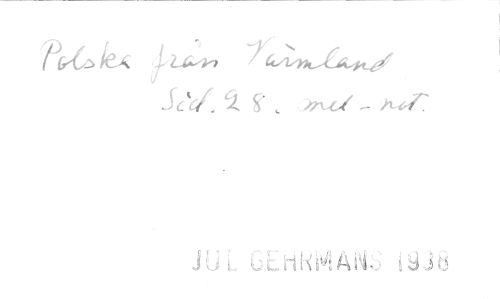 Polska från Värmland
Sid. 28. mel-not.
JUL GEHRMANS 1938